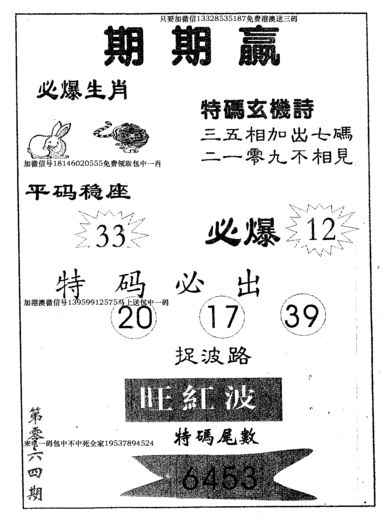 只要加微信13328535187免费港澳送三码
期期赢
必爆生肖
特碼玄機詩
三五相加出七碼
二一零九不相見
加微信号18146020555免费领取包中一肖
平码稳座
33
必爆
12
特码必出
加港澳微信号13959912575马上送包中一码
20 17 39
捉波路
旺紅波
特碼尾數
来电一码包中不中死全家19537894524
6453
第零六四期